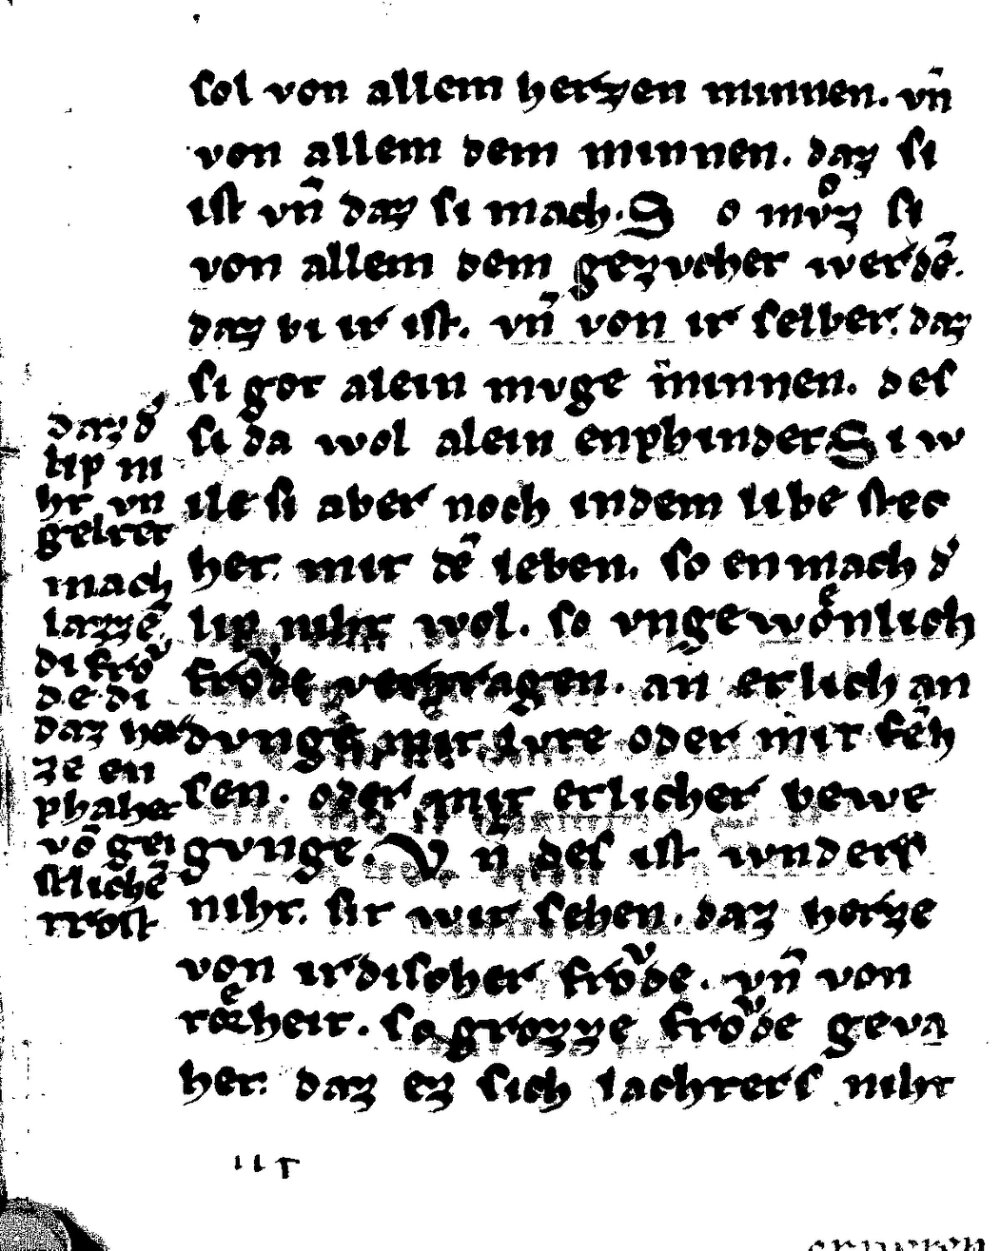 sol von allem herzen minnen. vñ
von allem dem minnen. daz si
ist vñ daz si mach. So mvͦz si
von allem dem gezvchet werdē.
daz bi ir ist. vñ von ir selber. daz
si got alein mvge minnen. des
si da wol alein enphindet Si w
ile si aber noch in dem libe stec
het. mit dē leben. so en mach d͛
lip niht wol. so vngewoͤnlich
froͮde vertragen. an erlich an
dvnge mit ivre oder mit sēh
sen. oder mit erlicher bewe
gvnge. Vn des ist wnders
niht. sit wir sehen. daz herze
von irdischer froͮde. vñ von
toͤrheit. so grozze froͮde geva
het. daz ez sich lachters niht
daz d͛
lip ni
ht vn
geletet
mach
lazzē.
di froͮ
de di
daz her
ze en
phahet
vō gei
stlichē
trost